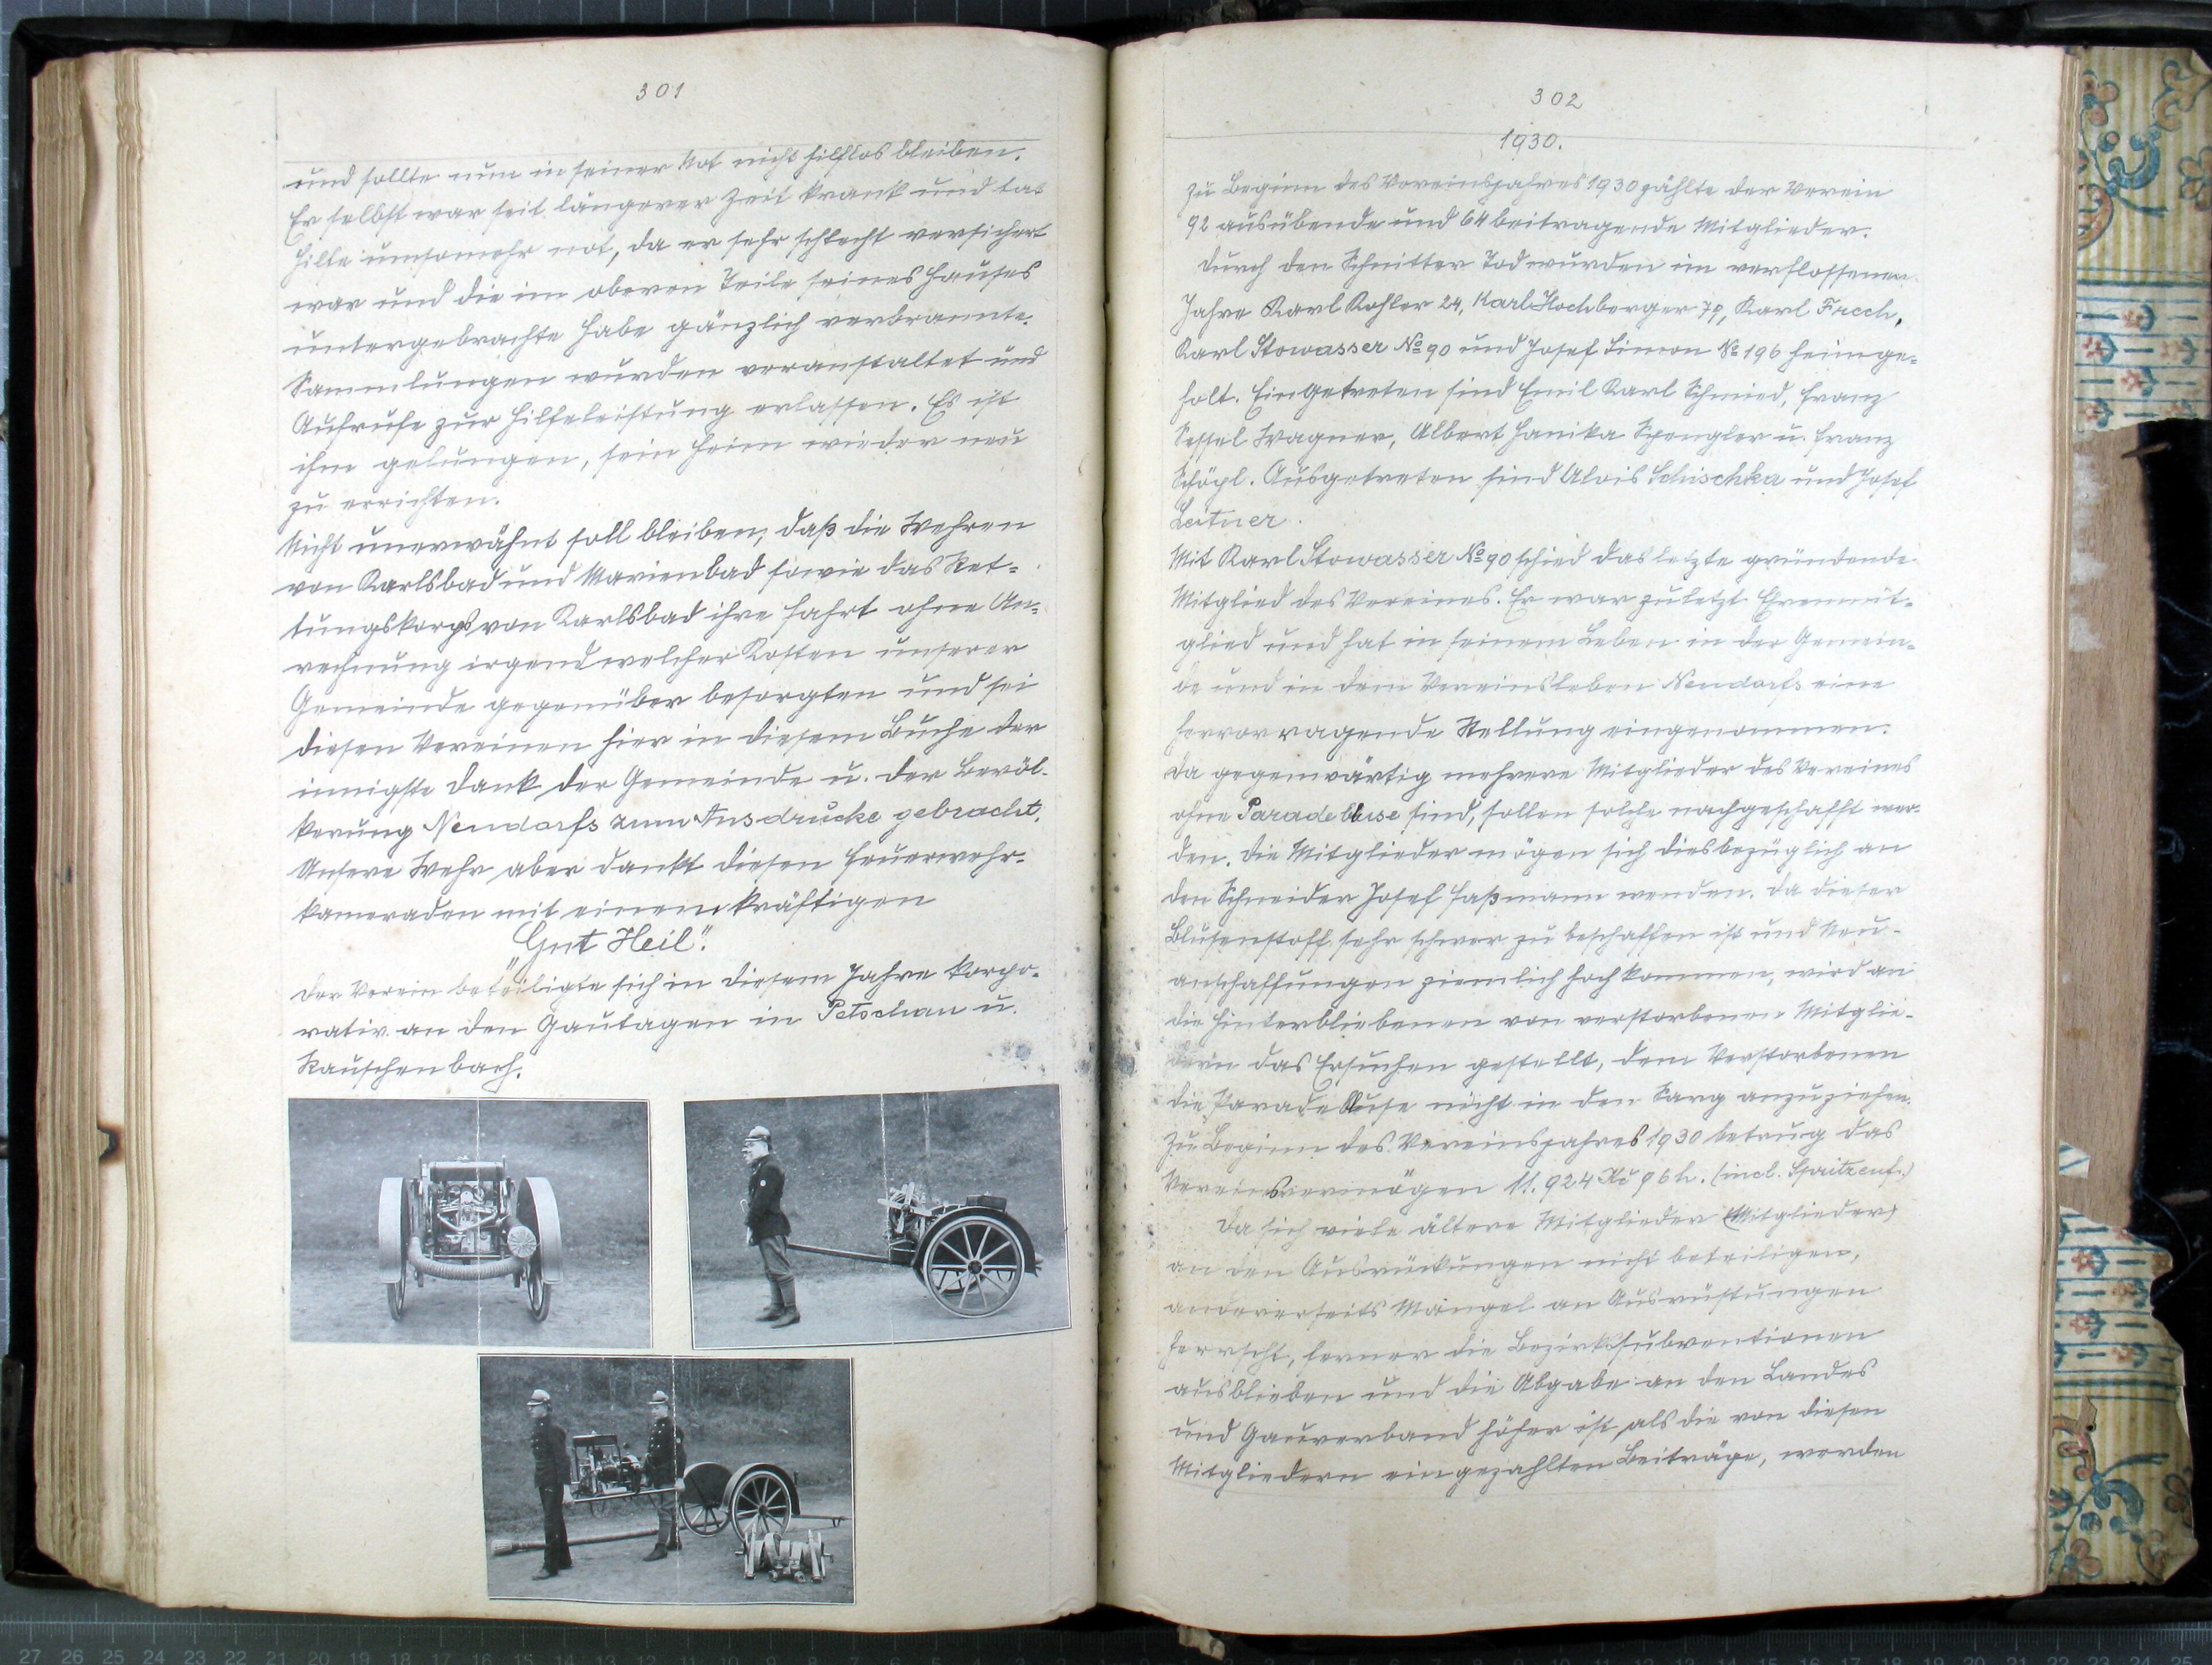 301
und sollte nun in seiner Not nicht hilflos bleiben.
Er selbst war seit längerer Zeit krank und tat
Hilfe umsomehr not, da er sehr schlecht versichert
war und die im oberen Teile seines Hauses
untergebrachte Habe gänzlich verbrannte.
Sammlungen wurden veranstaltet und
Aufrufe zur Hilfeleistung erlassen. Es ist
ihm gelungen, sein Heim wieder neu
zu errichten.
Nicht unerwähnt soll bleiben, daß die Wehren
von Karlsbad und Marienbad sowie das Ret=
tungskorps von Karlsbad ihre Fahrt ohne An=
rechnung irgendwelcher Kosten unserer
Gemeinde gegenüber besorgten und sei
diesen Vereinen hier in diesem Buche der
innigste Dank der Gemeinde u. der Bevöl-
kerung Neudorfs zum Ausdrucke gebracht.
Unsere Wehr aber dankt diesen Feuerwehr-
kameraden mit einem kräftigen
"Gut Heil".
Der Verein beteiligte sich in diesem Jahre korpo-
rativ an den Gautagen in Petschau u.
Rauschenbach.
302
1930.
Zu Beginn des Vereinsjahres 1930 zählte der Verein
92 ausübende und 64 beitragende Mitglieder.
Durch den Schnitter Tod wurden im verflossenen
Jahre Karl Kohler 24, Karl Hochberger 79, Karl Frech,
Karl Stowasser № 90 und Josef Simon № 196 heimge=
holt. Eingetreten sind Emil Karl Schmied, Franz
Sessel Wagner, Albert Hanika Spengler u. Franz
Schöpl. Ausgetreten sind Alois Schischka und Josef
Leitner.
Mit Karl Stowasser № 90 schied das letzte gründende
Mitglied des Vereines. Er war zuletzt Ehrenmit=
glied und hat in seinem Leben in der Gemein=
de und in dem Vereinsleben Neudorfs eine
hervorragende Stellung eingenommen.
Da gegenwärtig mehrere Mitglieder des Vereines
ohne Paradebluse sind, sollen solche nachgeschafft wer-
den. Die Mitglieder mögen sich diesbezüglich an
den Schneider Josef Faßmann wenden. Da dieser
Blusenstoff sehr schwer zu beschaffen ist und Neu-
anschaffungen ziemlich hoch kommen, wird an
die Hinterbliebenen von verstorbenen Mitglie-
dern das Ersuchen gestellt, dem Verstorbenen
die Paradebluse nicht in den Sarg anzuziehen.
Zu Beginn des Vereinsjahres 1930 betrug das
Vereinsvermögen 11.924 Kč 96 h. (incl. Spritzenf.)
Da sich viele ältere Mitglieder (Mitglieder)
an den Ausrückungen nicht beteiligen,
andererseits Mangel an Ausrüstungen
herrscht, ferner die Bezirkssubventionen
ausblieben und die Abgabe an den Landes
und Gauverband höher ist, als die von diesen
Mitgliedern eingezahlten Beiträge, werden
27 26 25 24 23 22 21 20 19 18 17 16 15 14 13 12 11 10